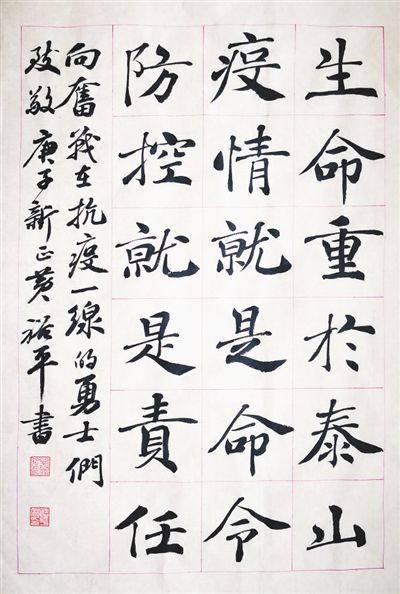 生命重於泰山
疫情就是命令
防控就是責任
向奮战在抗疫一線的勇士們
致敬庚子新正黄裕平書